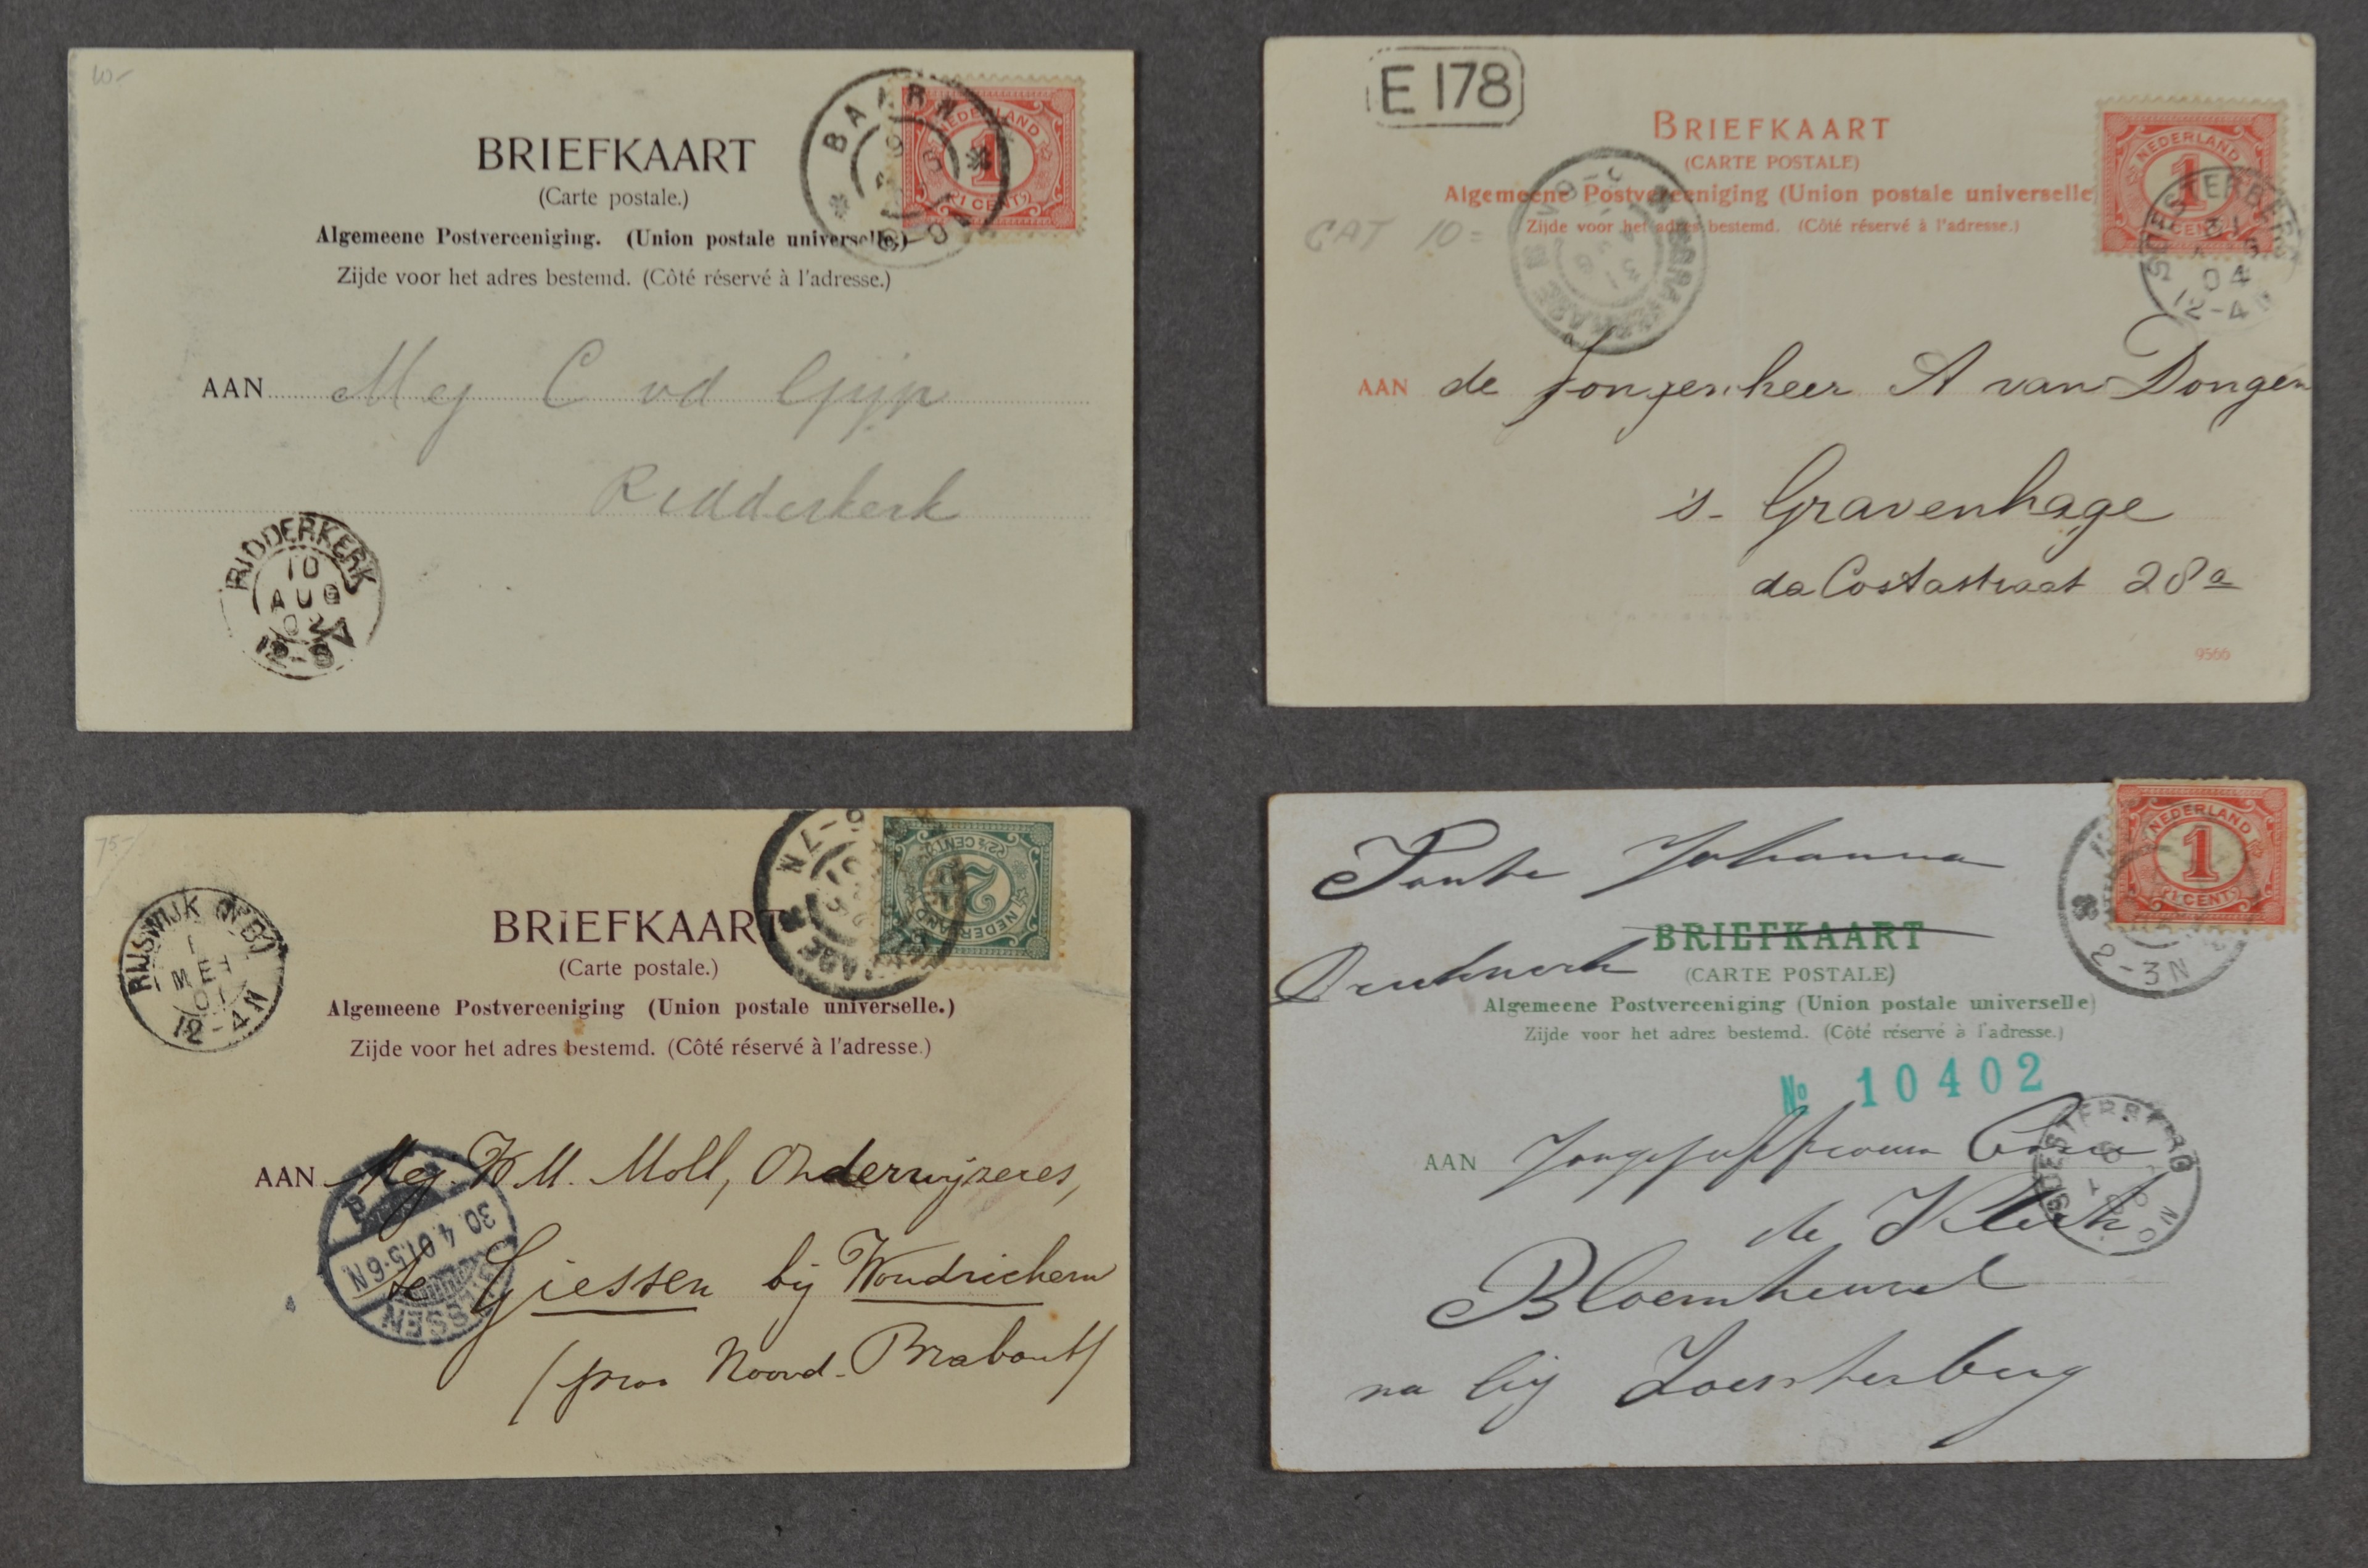 10-
BRIEFKAART
(Carte postale.)
Algemeene Postvereeniging. (Union postale universelle.)
Zijde voor het adres bestemd. (Côté réservé à l'adresse.)
BAARN
NEDERLAND
1
(1 CENT)
AAN Mej C vd Gijp
Ridderkerk
RIDDERKERK
10
AUG
02
12-8V
E 178
BRIEFKAART
(CARTE POSTALE)
Algemeene Postvereeniging (Union postale universelle
Zijde voor het adres bestemd. (Côté réservé à l'adresse.)
CAT 10=
NEDERLAND
1
CENT
SOESTERBERG
31
04
12-4
AAN de Jongenheer A van Dongen
's- Gravenhage
da Costastraat 28a
9566
75-
BRIEFKAART
(Carte postale.)
Algemeene Postvereeniging (Union postale universelle.)
Zijde voor het adres bestemd. (Côté réservé à l'adresse.)
-7N
NEDERLAND
2½
(2½ CENT)
RIJSWIJK (N.B)
1
MEI
01
12-4N
AAN Mej. W M. Moll, Onderwijzeres,
te Giessen bij Woudrichem
(prov Noord-Brabant)
GIESSEN
30.4.01.5-6N
Tante Johanna
Drukwerk
BRIEFKAART
(CARTE POSTALE)
Algemeene Postvereeniging (Union postale universelle)
Zijde voor het adres bestemd. (Côté réservé à l'adresse.)
NEDERLAND
1
(1 CENT)
2-3N
No 10402
SOESTERBERG
AAN Jongejuffrouw
de Klerk
Bloemheuvel
na bij Zoesterberg